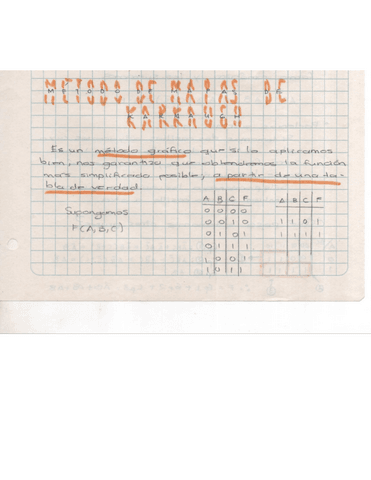 MÉTODO DE MAPAS DE
KARNAUGH
Es un método gráfico que si lo aplicamos
bien, nos garantiza que obtendremos la función
mas simplificada posible, a partir de una ta-
bla de verdad
Supongamos
F(A,B,C)
A B C F
0 0 0 0
0 0 1 0
0 1 0 1
0 1 1 1
1 0 0 1
1 0 1 1
A B C F
1 1 0 1
1 1 1 1